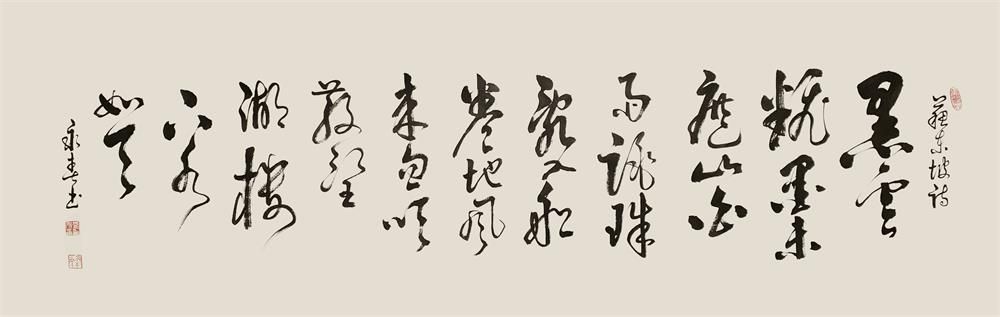 蘇東坡詩
黑雲
翻墨未
遮山白
雨跳珠
亂入船
卷地風
来忽吹
散望
湖樓
下水
如天
永春书